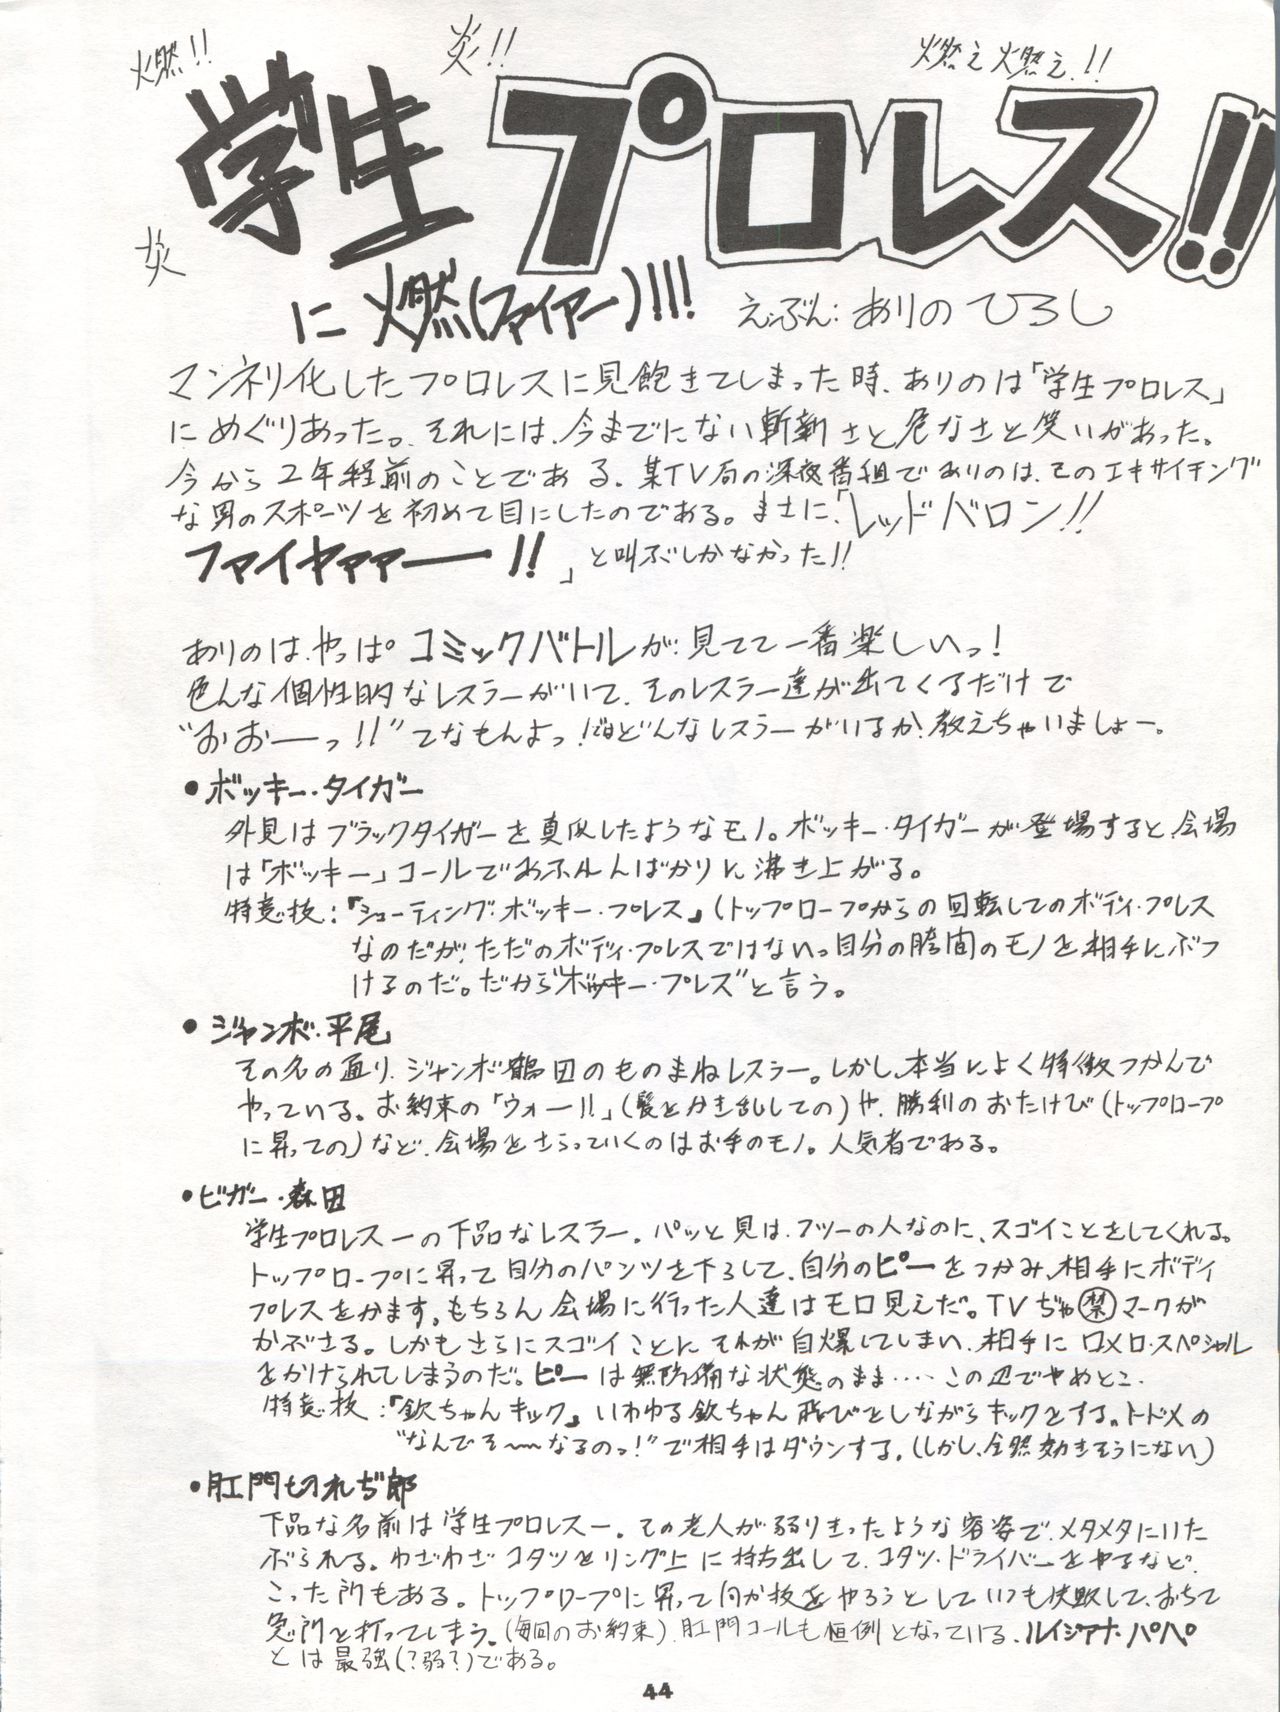 燃!!
炎!!
燃え燃え!!
学生プロレス!!
炎
に燃(ファイアー)!!!
えぶん:ありのひろし
マンネリ化したプロレスに見飽きてしまった時、ありのは「学生プロレス」
にめぐりあった。それには、今までにない斬新さと危なさと笑いがあった。
今から2年程前のことである、某TV局の深夜番組でありのは、そのエキサイチング
な男のスポーツを初めて目にしたのである。まさに、「レッドバロン!!
ファイヤァァー!!」と叫ぶしかなかった!!
ありのは、やっぱ コミックバトルが見てて一番楽しいっ!
色んな個性的なレスラーがいて、そのレスラー達が出てくるだけで
"おおーっ!!"てなもんよっ!ではどんなレスラーがいるか、教えちゃいましょー。
•ボッキー・タイガー
外見はブラックタイガーを真似したようなモノ。ボッキー・タイガーが登場すると、会場
は「ボッキー」コールであふれんばかりに沸き上がる。
特意技:『シューティング・ボッキー・プレス』(トップロープからの回転してのボディ・プレス
なのだが、ただのボディ・プレスではないっ自分の胯間のモノを相手にぶつ
けるのだ。だから"ボッキー・プレス"と言う。
•ジャンボ・平尾
その名の通り、ジャンボ鶴田のものまねレスラー。しかし、本当によく特徴つかんで
やっている。お約束の「ウォー!!」(髪をかき乱しての)や、勝利のおたけび(トップロープ
に昇っての)など、会場をさらっていくのはお手のモノ。人気者である。
•ビガー・森田
学生プロレス一の下品なレスラー。パッと見は、フツーの人なのに、スゴイことをしてくれる。
トップロープに昇って自分のパンツを下ろして、自分のピーをつかみ、相手にボディ
プレスをかます。もちろん会場に行った人達はモロ見えだ。TVぢゃ㊙マークが
かぶさる。しかもさらにスゴイことにそれが自爆してしまい、相手にロメロ・スペシャル
をかけられてしまうのだ。ピーは無防備な状態のまま‥‥この辺でやめとこ。
特意技:『欽ちゃんキック』いわゆる欽ちゃん飛びをしながらキックをする。トドメの
"なんでそ〜なるのっ!"で相手はダウンする。(しかし、全然効きそうにない)
•肛門切れぢ郎
下品な名前は学生プロレス一。その老人が弱りきったような容姿で、メタメタにいた
ぶられる。わざわざコタツをリング上に持ち出して、コタツ・ドライバーをやるなど、
こった所もある。トップロープに昇って何か技をやろうとしていつも失敗して、おちて
急所を打ってしまう。(毎回のお約束)、肛門コールも恒例となっている、ルイジアナ・パペ
とは最強(?弱?)である。
44